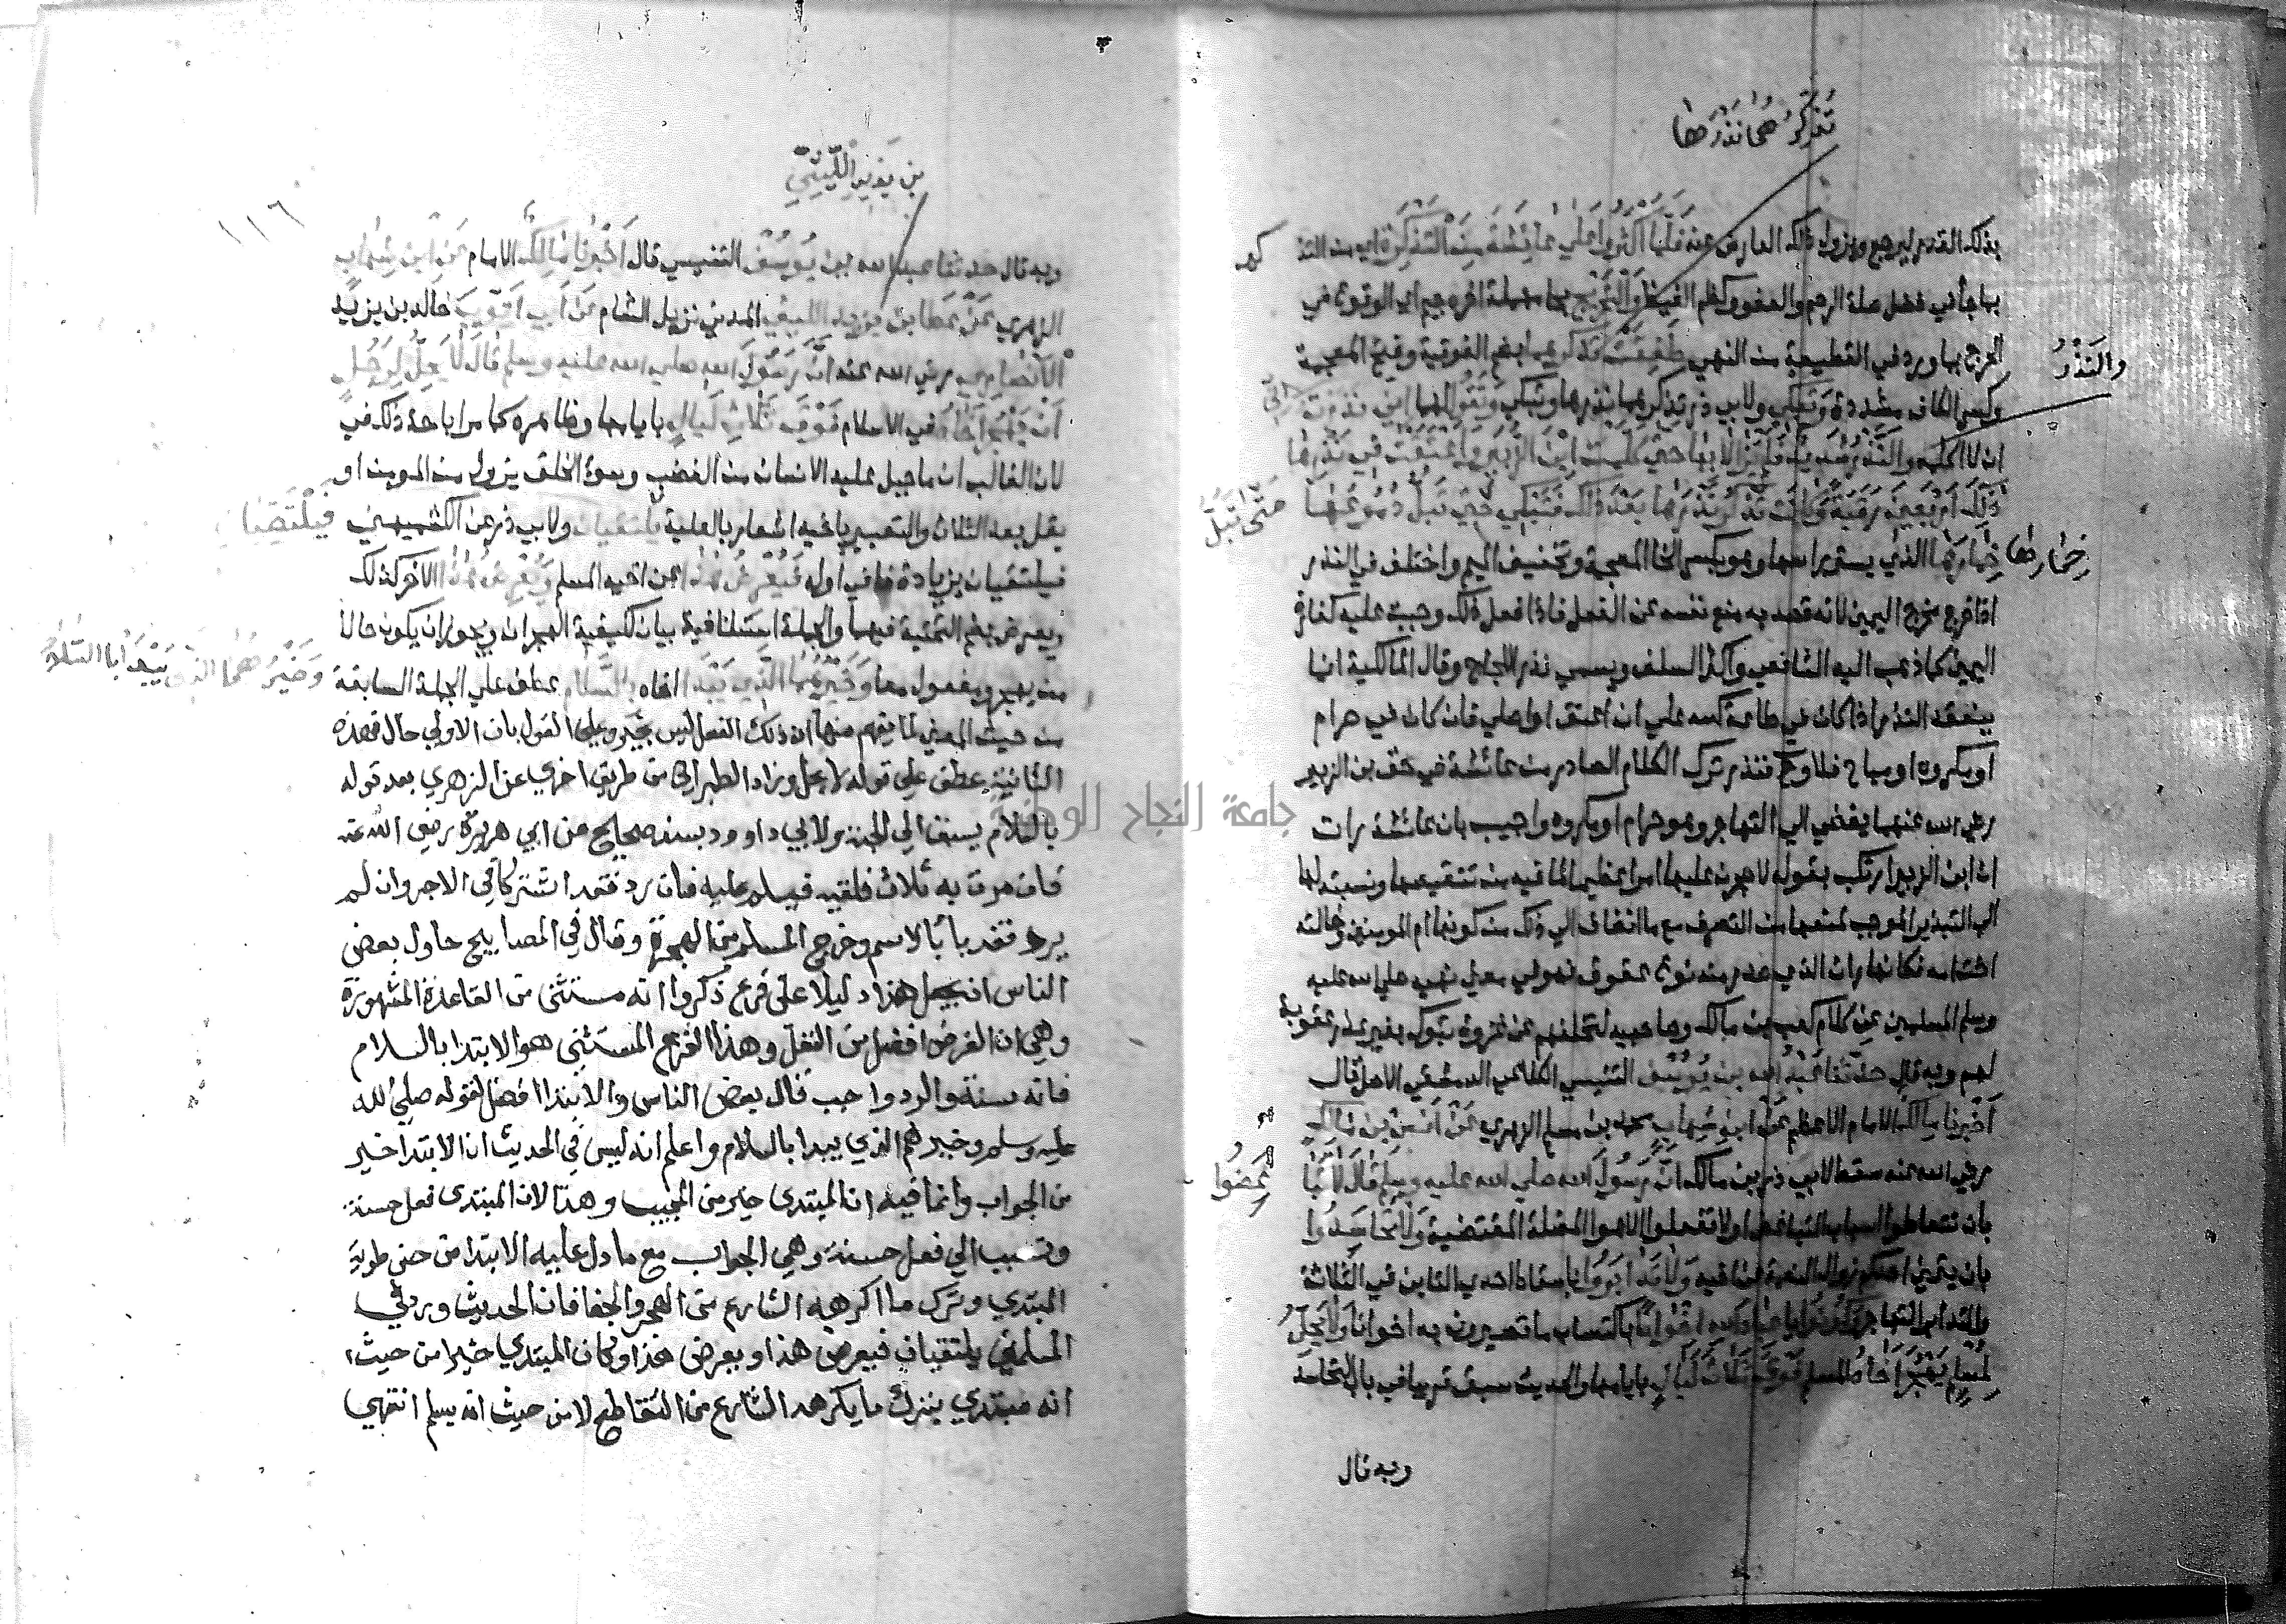 تذكرهما نذرها
بذلك القدر ليرجع ويزول ذلك العارض عنه فلما اكثروا على عائشة من التذكرة اي من التذ
كير
بما جاء في فضل صلة الرحم والعفو وكظم الغيظ والتحريج بحا مهملة اخره جيم اي الوقوع في
الحرج بما ورد في القطيعة من النهي طفقت تذكرهما بضم الفوقية وفتح المعجمة
والنذر
وكسر الكاف مشددة وتبكي ولابي ذر تذكرهما نذرها وتبكي وتقول لهما اني نذرت
اني
ان لا اكلمه والنذر شديد فلم يزالا بها حتى كلمت ابن الزبير واعتقت في نذرها
ذلك اربعين رقبة وكانت تذكر نذرها بعد ذلك فتبكي حتى تبل دموعها
حتى تبل
خمارها
خمارها الذي يستر راسها وهو بكسر الخا المعجمة وتخفيف الميم واختلف في النذر
اذا خرج مخرج اليمين لانه قصد به منع نفسه عن الفعل فاذا فعل ذلك وجبت عليه كفارة
اليمين كما ذهب اليه الشافعي واكثر السلف ويسمى نذر اللجاج وقال المالكية انما
ينعقد النذر اذا كان في طاعة كلله علي ان اعتق او اصلي فان كان في حرام
او مكروه او مباح فلا وح فنذر ترك الكلام الصادر من عائشة في حق بن الزبير
رضي الله عنهما يفضي الى التهاجر وهو حرام او مكروه واجيب بان عائشة رات
ان ابن الزبير ارتكب بقوله لاحجرن عليها امرا عظيما لما فيه من تنقيصها ونسبته لها
الى التبذير الموجب لمنعها من التصرف مع ما انضاف الى ذلك من كونها ام المومنين وخالته
اخت امه فكانها رات الذي صدر منه نوع عقوق فهو في معنى نهيه صلى الله عليه
وسلم المسلمين عن كلام كعب بن مالك وصاحبيه لتخلفهم عن غزوة تبوك بغير عذر عقوبة
لهم وبه قال حدثنا عبد الله بن يوسف التنيسي الكلاعي الدمشقي الاصل قال
اخبرنا مالك الامام الاعظم عن ابن شهاب محمد بن مسلم الزهري عن انس بن مالك
رضي الله عنه سقط لابي ذر بن مالك ان رسول الله صلى الله عليه وسلم قال لا تبا
غضوا
بان تتعاطوا اسباب التباغض او لا تفعلوا الاهوا المضلة المقتضية ولا تحاسدوا
بان يتمنى احدكم زوال النعمة عن اخيه ولا تدابروا باسقاط احدى التاين في الثلاثة
والتدابر التهاجر وكونوا يا عباد الله اخوانا باكتساب ما تصيرون به اخوانا ولا يحل
لمسلم يهجر اخاه المسلم فوق ثلاث ليال بايامها والحديث سبق قريبا في باب التحاسد
وبه قال
بن يزيد الليثي
١١٦
وبه قال حدثنا عبد الله بن يوسف التنيسي قال اخبرنا مالك الامام عن ابن شهاب
الزهري عن عطا بن يزيد الليثي المدني نزيل الشام عن ابي ايوب خالد بن يزيد
الانصاري رضي الله عنه ان رسول الله صلى الله عليه وسلم قال لا يحل لرجل
ان يهجر اخاه في الاسلام فوق ثلاث ليال بايامها وظاهره كما مر اباحة ذلك في
لان الغالب ان ما جبل عليه الانسان من الغضب وسوء الخلق يزول من المومن او
يقل بعد الثلاث والتعبير باخيه اشعار بالعلية يلتقيان ولابي ذر عن الكشميهني
فيلتقيان
فيلتقيان بزيادة فا في اوله فيعرض هذا عن اخيه المسلم ويعرض هذا الاخر كذلك
ويعرض بضم التحتية فيهما والجملة استئنافية بيان لكيفية الهجران ويجوز ان يكون حالا
من يهجر ومفعوله معا وخيرهما الذي يبدا اخاه بالسلام عطف على الجملة السابقة
وخيرهما الذي يبدا بالسلام
من حيث المعنى لما يفهم منها ان ذلك الفعل ليس بخير وعلى القول بان الاولي حال فهذه
الثانية عطف على قوله لا يحل وزاد الطبراني من طريق اخرى عن الزهري بعد قوله
بالسلام يسبق الى الجنة ولابي داوود بسند صحيح من ابي هريرة رضي الله عنه
فان مرت به ثلاث فلقيه فيسلم عليه فان رد فقد اشتركا في الاجر وان لم
يرد فقد باء بالاثم وخرج المسلم من الهجرة وقال في المصابيح حاول بعض
الناس ان يجعل هذا دليلا على فرع ذكروا انه مستثنى من القاعدة المشهورة
وهي ان الفرض افضل من النفل وهذا الفرع المستثنى هو الابتدا بالسلام
فانه سنة والرد واجب قال بعض الناس والابتدا افضل لقوله صلى الله
عليه وسلم وخيرهم الذي يبدا بالسلام واعلم انه ليس في الحديث ان الابتدا خير
من الجواب وانما فيه ان المبتدى خير من المجيب وهذا لان المبتدى فعل حسنة
وتسبب الى فعل حسنة وهي الجواب مع ما دل عليه الابتدا من حسن طوية
المبتدي وترك ما اكرهه الشارع من الهجر والجفا فان الحديث ورد في
المسلمين يلتقيان فيعرض هذا ويعرض هذا وكان المبتدي خيرا من حيث
انه مبتدي بترك ما يكرهه الشارع من التقاطع لا من حيث انه يسلم انتهى
جامعة النجاح الوطنية